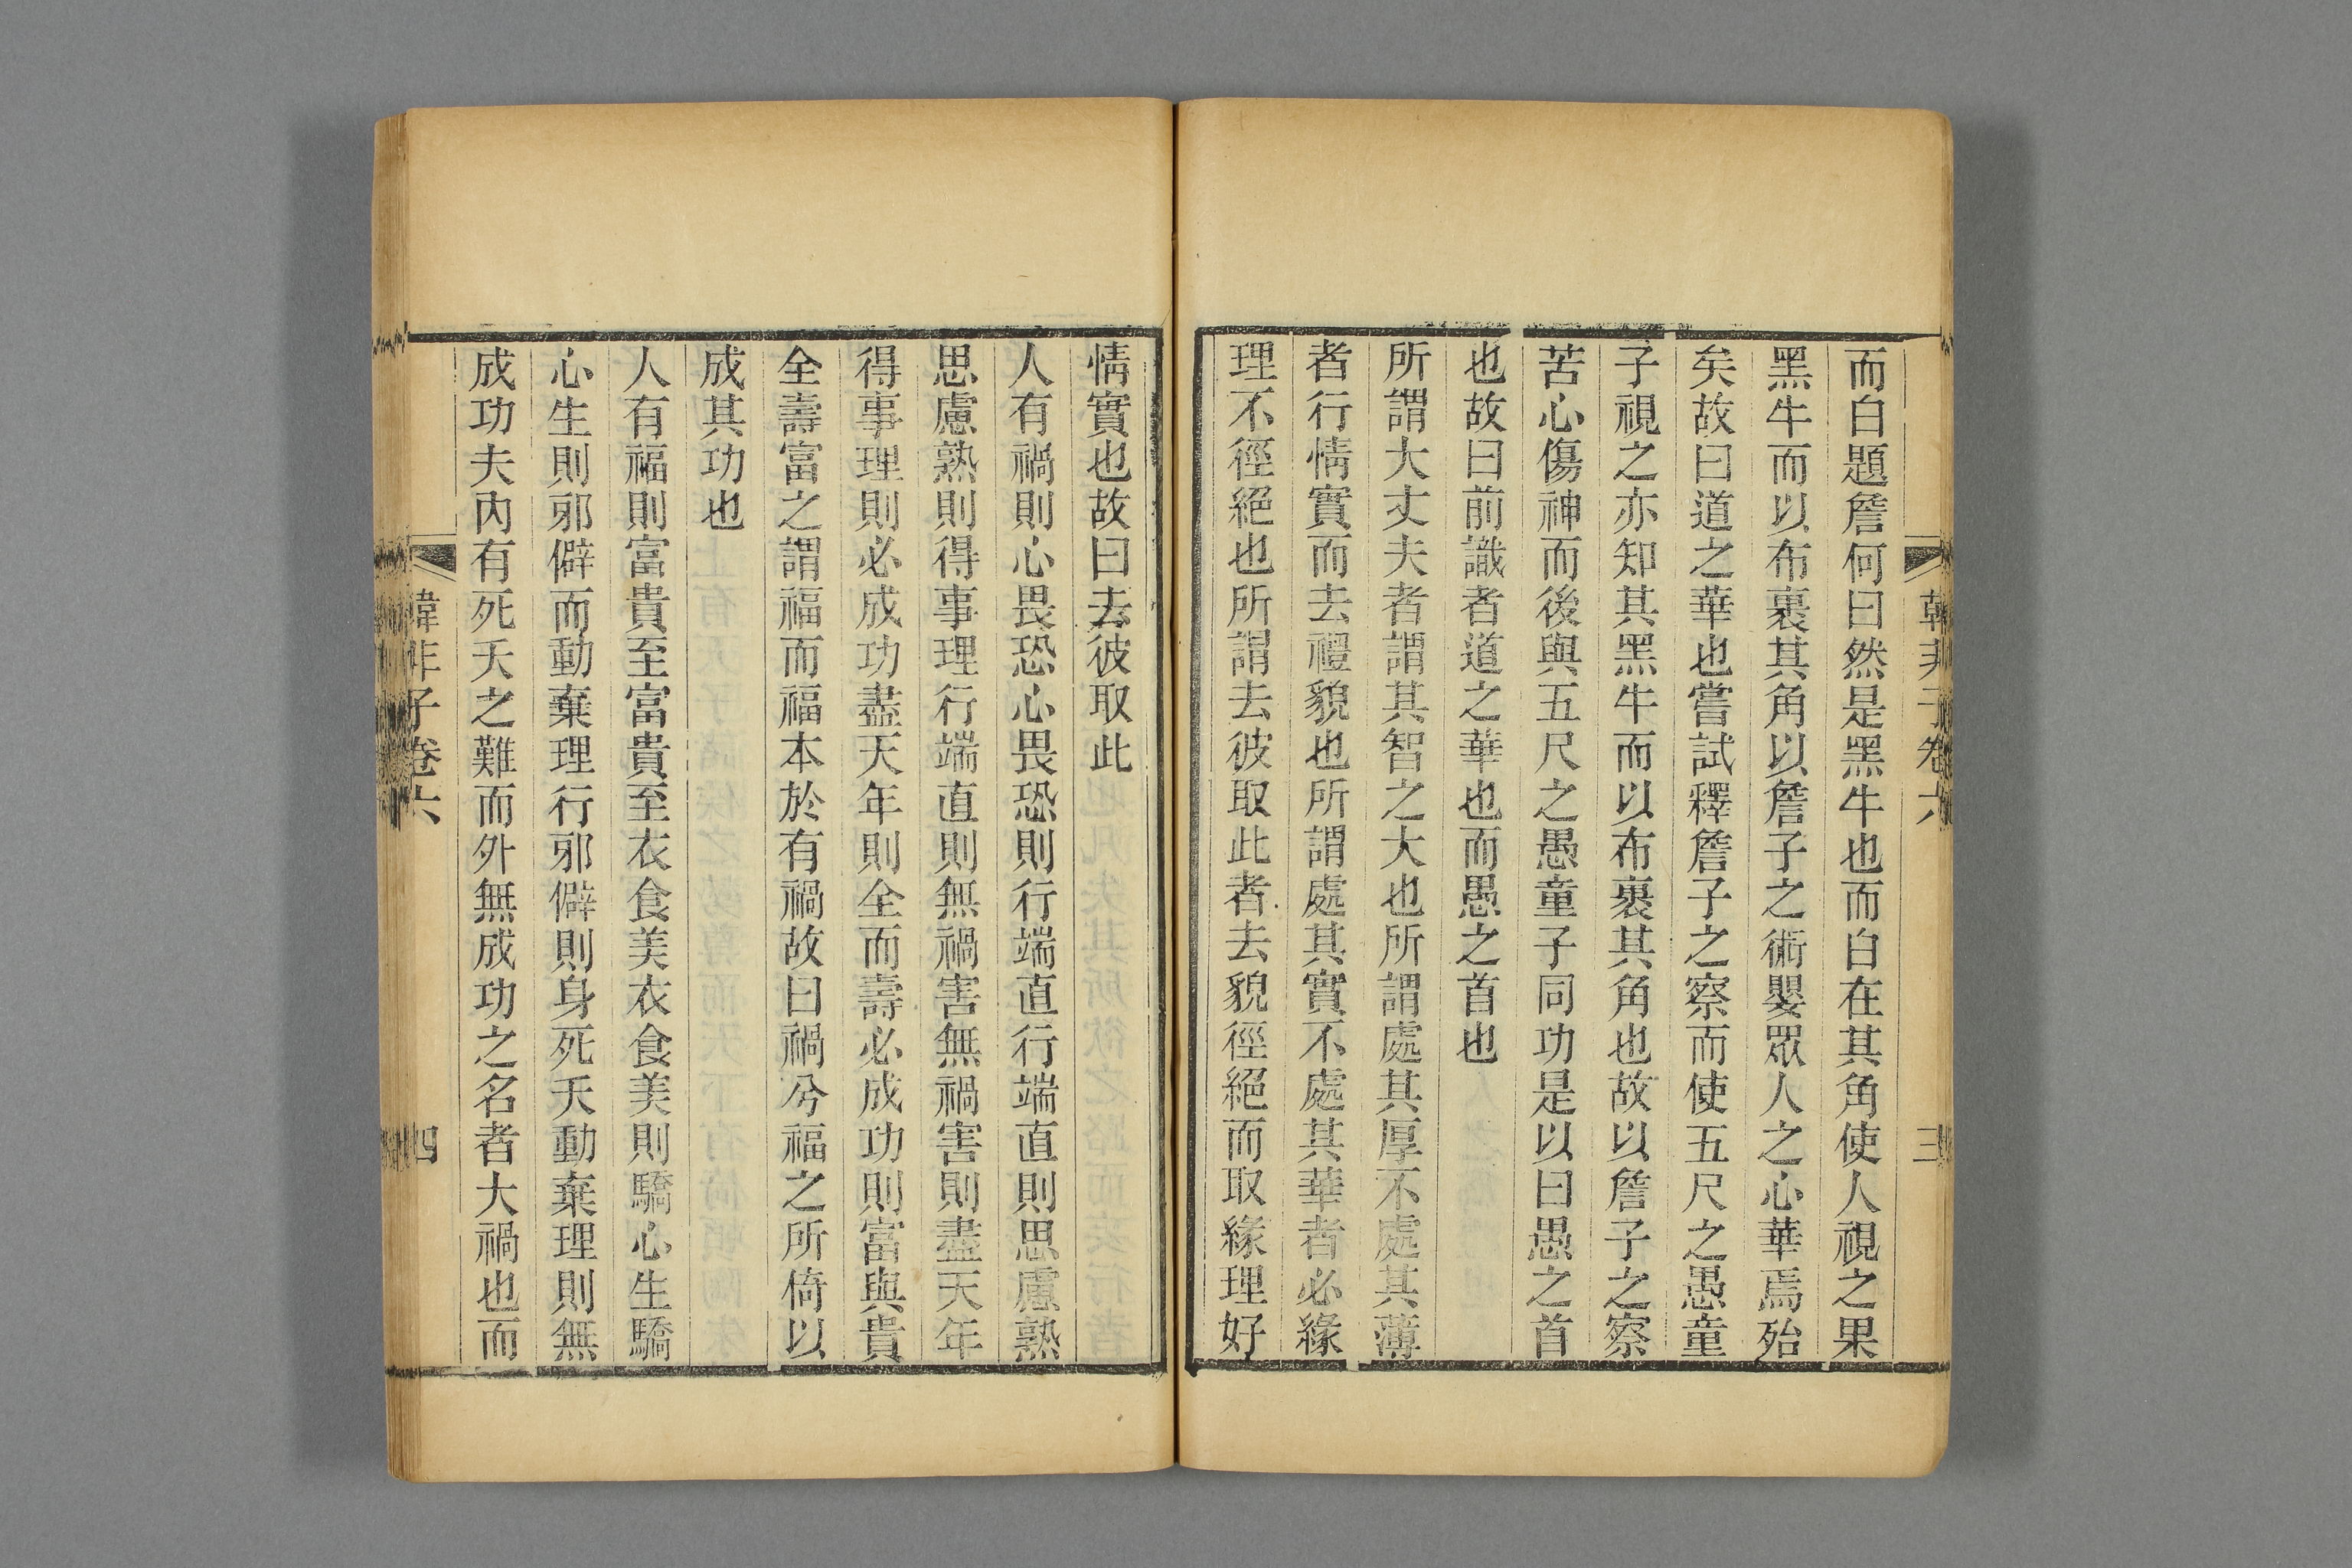 韓非子卷六
三
而白題詹何曰然是黑牛也而白在其角使人視之果
黑牛而以布裹其角以詹子之術嬰眾人之心華焉殆
矣故曰道之華也嘗試釋詹子之察而使五尺之愚童
子視之亦知其黑牛而以布裹其角也故以詹子之察
苦心傷神而後與五尺之愚童子同功是以曰愚之首
也故曰前識者道之華也而愚之首也
所謂大丈夫者謂其智之大也所謂處其厚不處其薄
者行情實而去禮貌也所謂處其實不處其華者必緣
理不徑絕也所謂去彼取此者去貌徑絕而取緣理好
情實也故曰去彼取此
人有禍則心畏恐心畏恐則行端直行端直則思慮熟
思慮熟則得事理行端直則無禍害無禍害則盡天年
得事理則必成功盡天年則全而壽必成功則富與貴
全壽富之謂福而福本於有禍故曰禍兮福之所倚以
成其功也
人有福則富貴至富貴至衣食美衣食美則驕心生驕
心生則邪僻而動棄理行邪僻則身死夭動棄理則無
成功夫內有死夭之難而外無成功之名者大禍也而
韓非子卷六
四